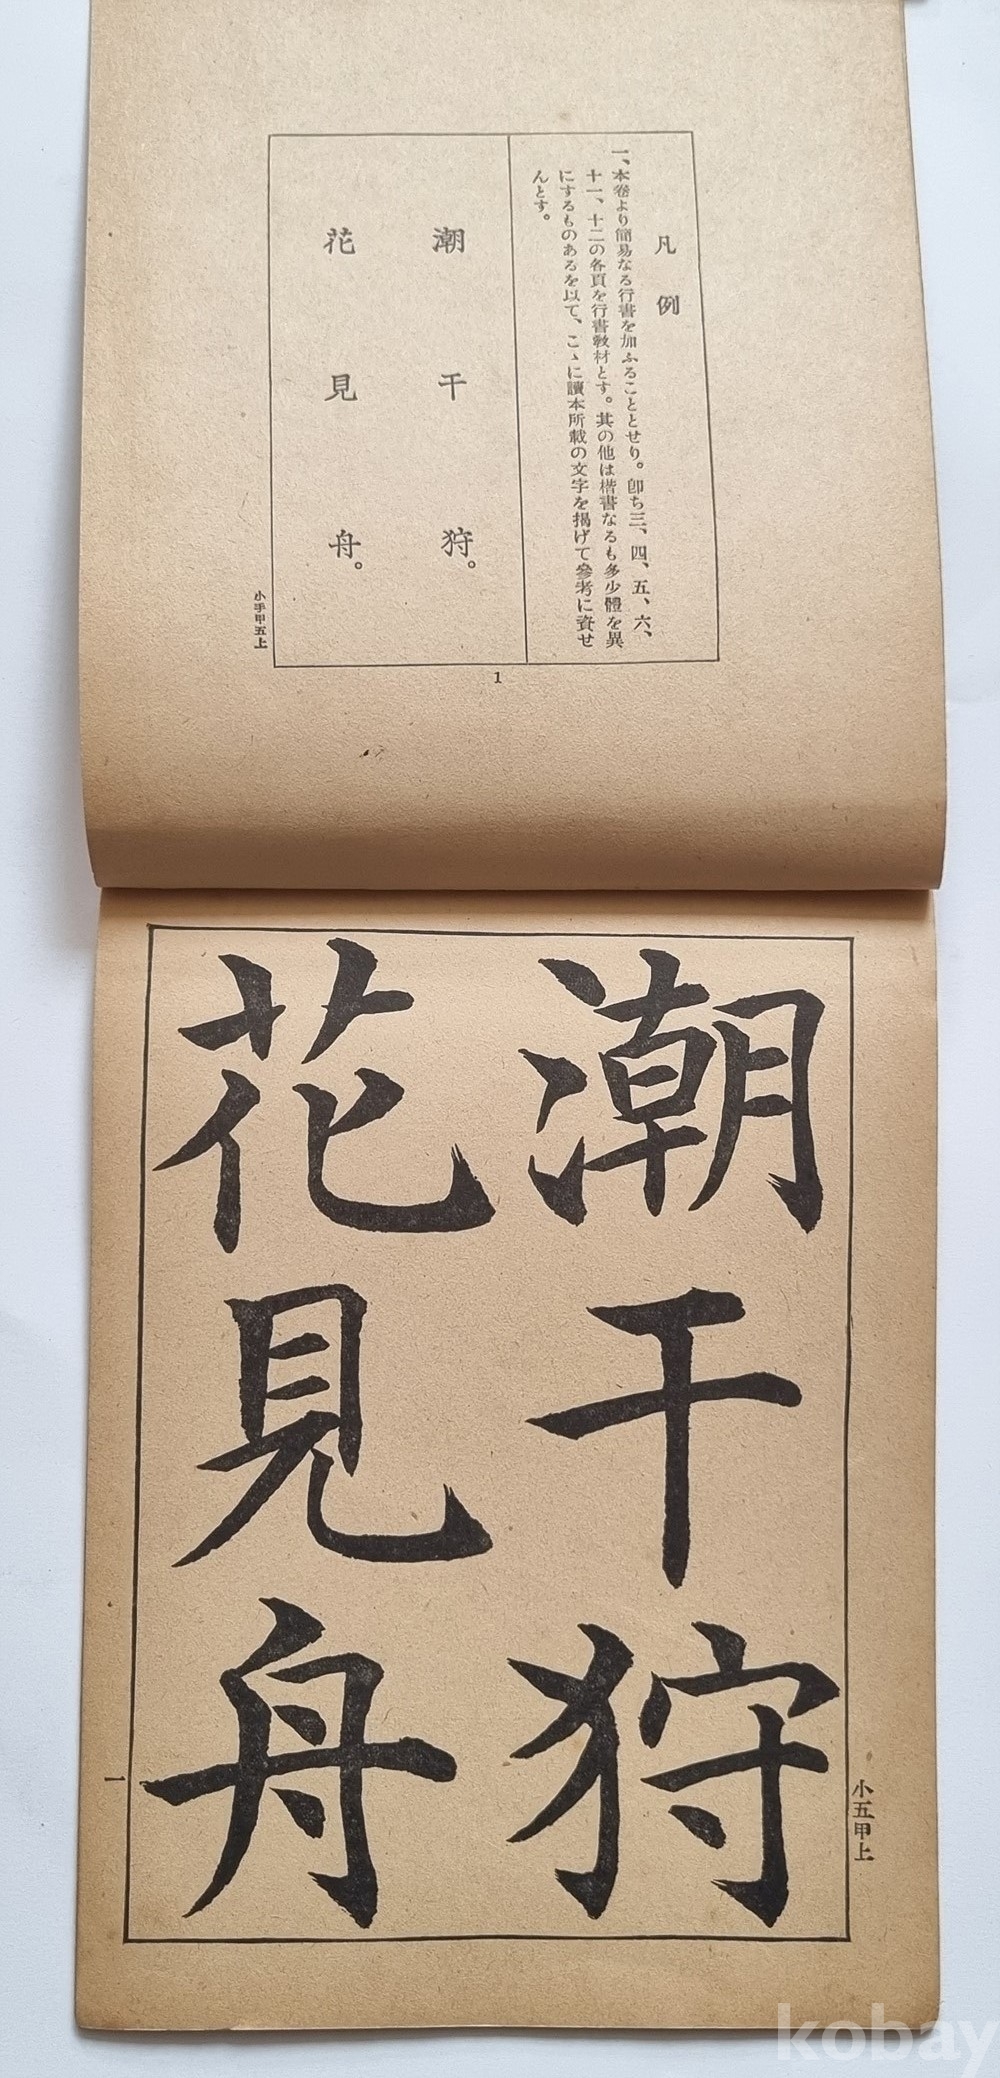 凡例
一、本卷より簡易なる行書を加ふることとせり。卽ち三、四、五、六、
十一、十二の各頁を行書敎材とす。其の他は楷書なるも多少體を異
にするものあるを以て、こゝに讀本所載の文字を揭げて參考に資せ
んとす。
潮干狩。
花見舟。
小手甲五上
1
小五甲上
潮干狩
花見舟
一
kobay